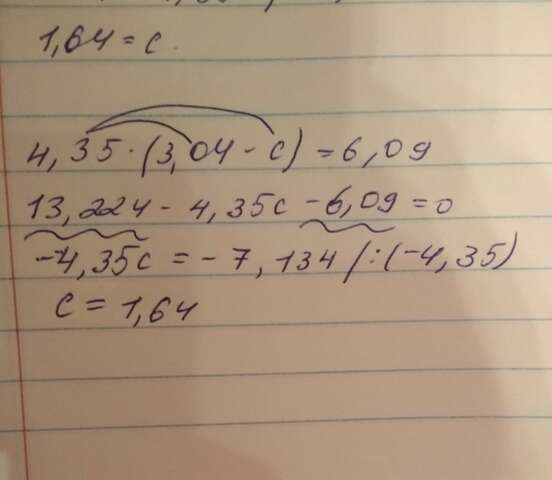 1,64 = c.
4,35 · (3,04 - c) = 6,09
13,224 - 4,35c - 6,09 = 0
-4,35c = -7,134 /:(-4,35)
c = 1,64